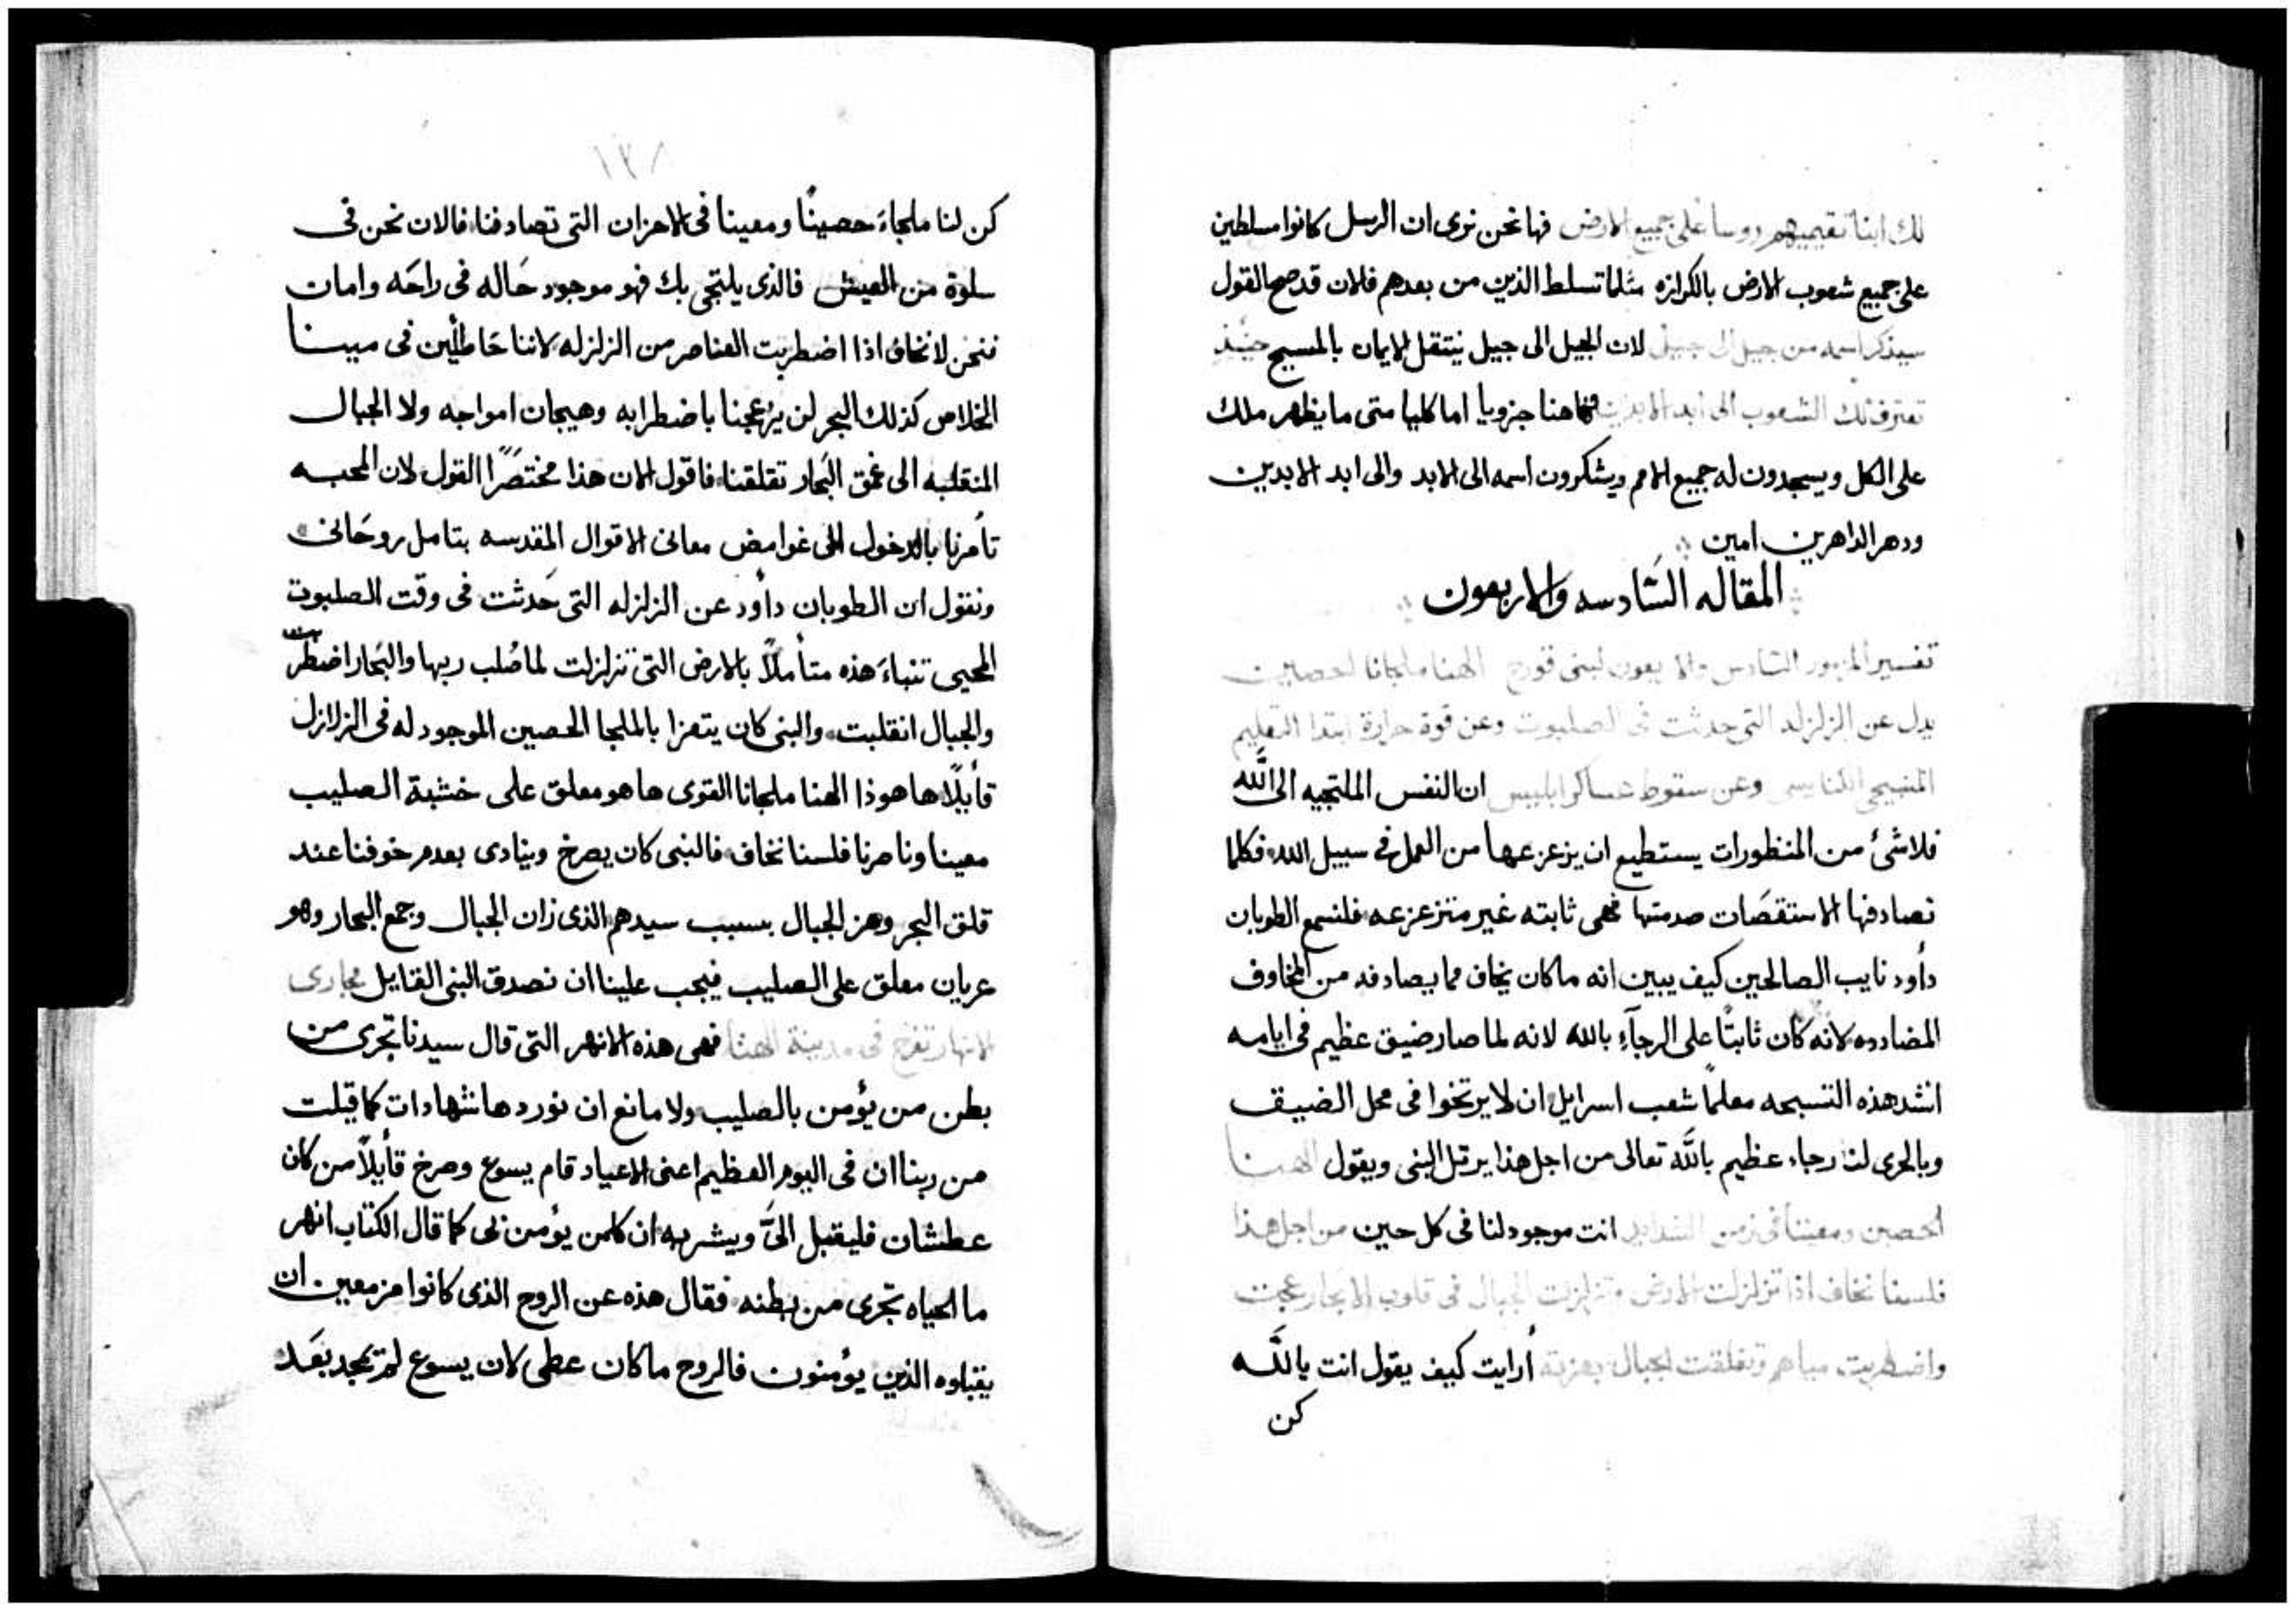 لك ابنا تقيمهم روسا على جميع الارض فها نحن نرى ان الرسل كانوا مسلطين
على جميع شعوب الارض بالكرازه مثلما تسلط الذين من بعدهم فلان قد صح القول
سيذكر اسمه من جيل الى جيل لان الجيل الى جيل ينتقل الايمان بالمسيح حينيذ
تعترف لك الشعوب الى ابد الابدين فهاهنا جزويا اما كليا متى ما يظهر ملك
على الكل ويسجدون له جميع الامم ويشكرون اسمه الى الابد والى ابد الابدين
ودهر الداهرين امين
المقاله السَّادسه والاربعون
تفسير المزمور السادس والاربعون لبنى قورح الهنا ملجانا الحصين
يدل عن الزلزله التى حدثت فى الصلبوت وعن قوة حرارة ابتدا التعليم
المسيحى الكنايسى وعن سقوط عساكر ابليس ان النفس الملتجيه الى اللَّه
فلا شىٔ من المنظورات يستطيع ان يزعزعها من العمل فى سبيل الله فكلما
تصادفها الاستقصَات صدمتها فهى ثابته غير متزعزعه فلنسمع الطوبان
داود نايب الصالحين كيف يبين انه ما كان يخاف مما يصادفه من المخاوف
المضادده لانه كان ثابتًا على الرجآءِ بالله لانه لما صار ضيق عظيم فى ايامه
انشد هذه التسبحه معلمًا شعب اسرايل ان لا يرتخوا فى محل الضيق
وبالحرى لنا رجاء عظيم باللَّه تعالى من اجل هذا يرتل النبى ويقول الهنا
الحصين ومعيننا فى زمن الشدايد انت موجود لنا فى كل حين من اجل هذا
فلسنا نخاف اذا تزلزلت الارض وتزلزلت الجبال فى قلوب الابحار عجت
واضطربت مياهم وتقلقت الجبال بعزته أرايت كيف يقول انت يا اللَّه
كن
١٣١
كن لنا ملجاءَ حصينًا ومعينا فى الاحزان التى تصادفنا فالان نحن فى
سلوة من العيش فالذى يلتجى بك فهو موجود حَاله فى راحَه وامان
فنحن لا نخاف اذا اضطربت العناصر من الزلزله لاننا حَاصلين فى مينا
الخلاص كذلك البحر لن يزعجنا باضطرابه وهيجان امواجه ولا الجبال
المنقلبه الى عمق البَحار تقلقنا فاقول الان هذا مختصَرًا القول لان المحبه
تأمرنا بالدخول الى غوامض معانى الاقوال المقدسه بتامل روحَانى
ونقول ان الطوبان داود عن الزلزله التى حَدثت فى وقت الصلبوت
المحيى تنباءَ هذه متأملاً بالارض التى تزلزلت لما صُلب ربها والبَحار اضطربت
والجبال انقلبت والنبى كان يتعزا بالملجا الحصين الموجود له فى الزلازل
قأيلًا هاهوذا الهنا ملجانا القوى ها هو معلق على خشبة الصليب
معيننا وناصرنا فلسنا نخاف فالنبى كان يصرخ وينادى بعدم خوفنا عند
قلق البحر وهز الجبال بسبب سيدهم الذى زان الجبال وجمع البحار وهو
عريان معلق على الصليب فيجب علينا ان نصدق النبى القايل مجارى
الانهار تفرح فى مدينة الهنا فهى هذه الانهر التى قال سيدنا تجرى من
بطن من يؤمن بالصليب ولا مانع ان نوردها شهادات كما قيلت
من ربنا ان فى اليوم العظيم اعنى الاعياد قام يسوع وصرخ قأيلاً من كان
عطشان فليقبل الىَّ ويشرب ان كلمن يؤمن بى كما قال الكتاب انهر
ما الحياه تجرى من بطنه فقال هذه عن الروح الذى كانوا مزمعين ان
يقبلوه الذين يؤمنون فالروح ما كان عطى لان يسوع لم يمجد بعَد